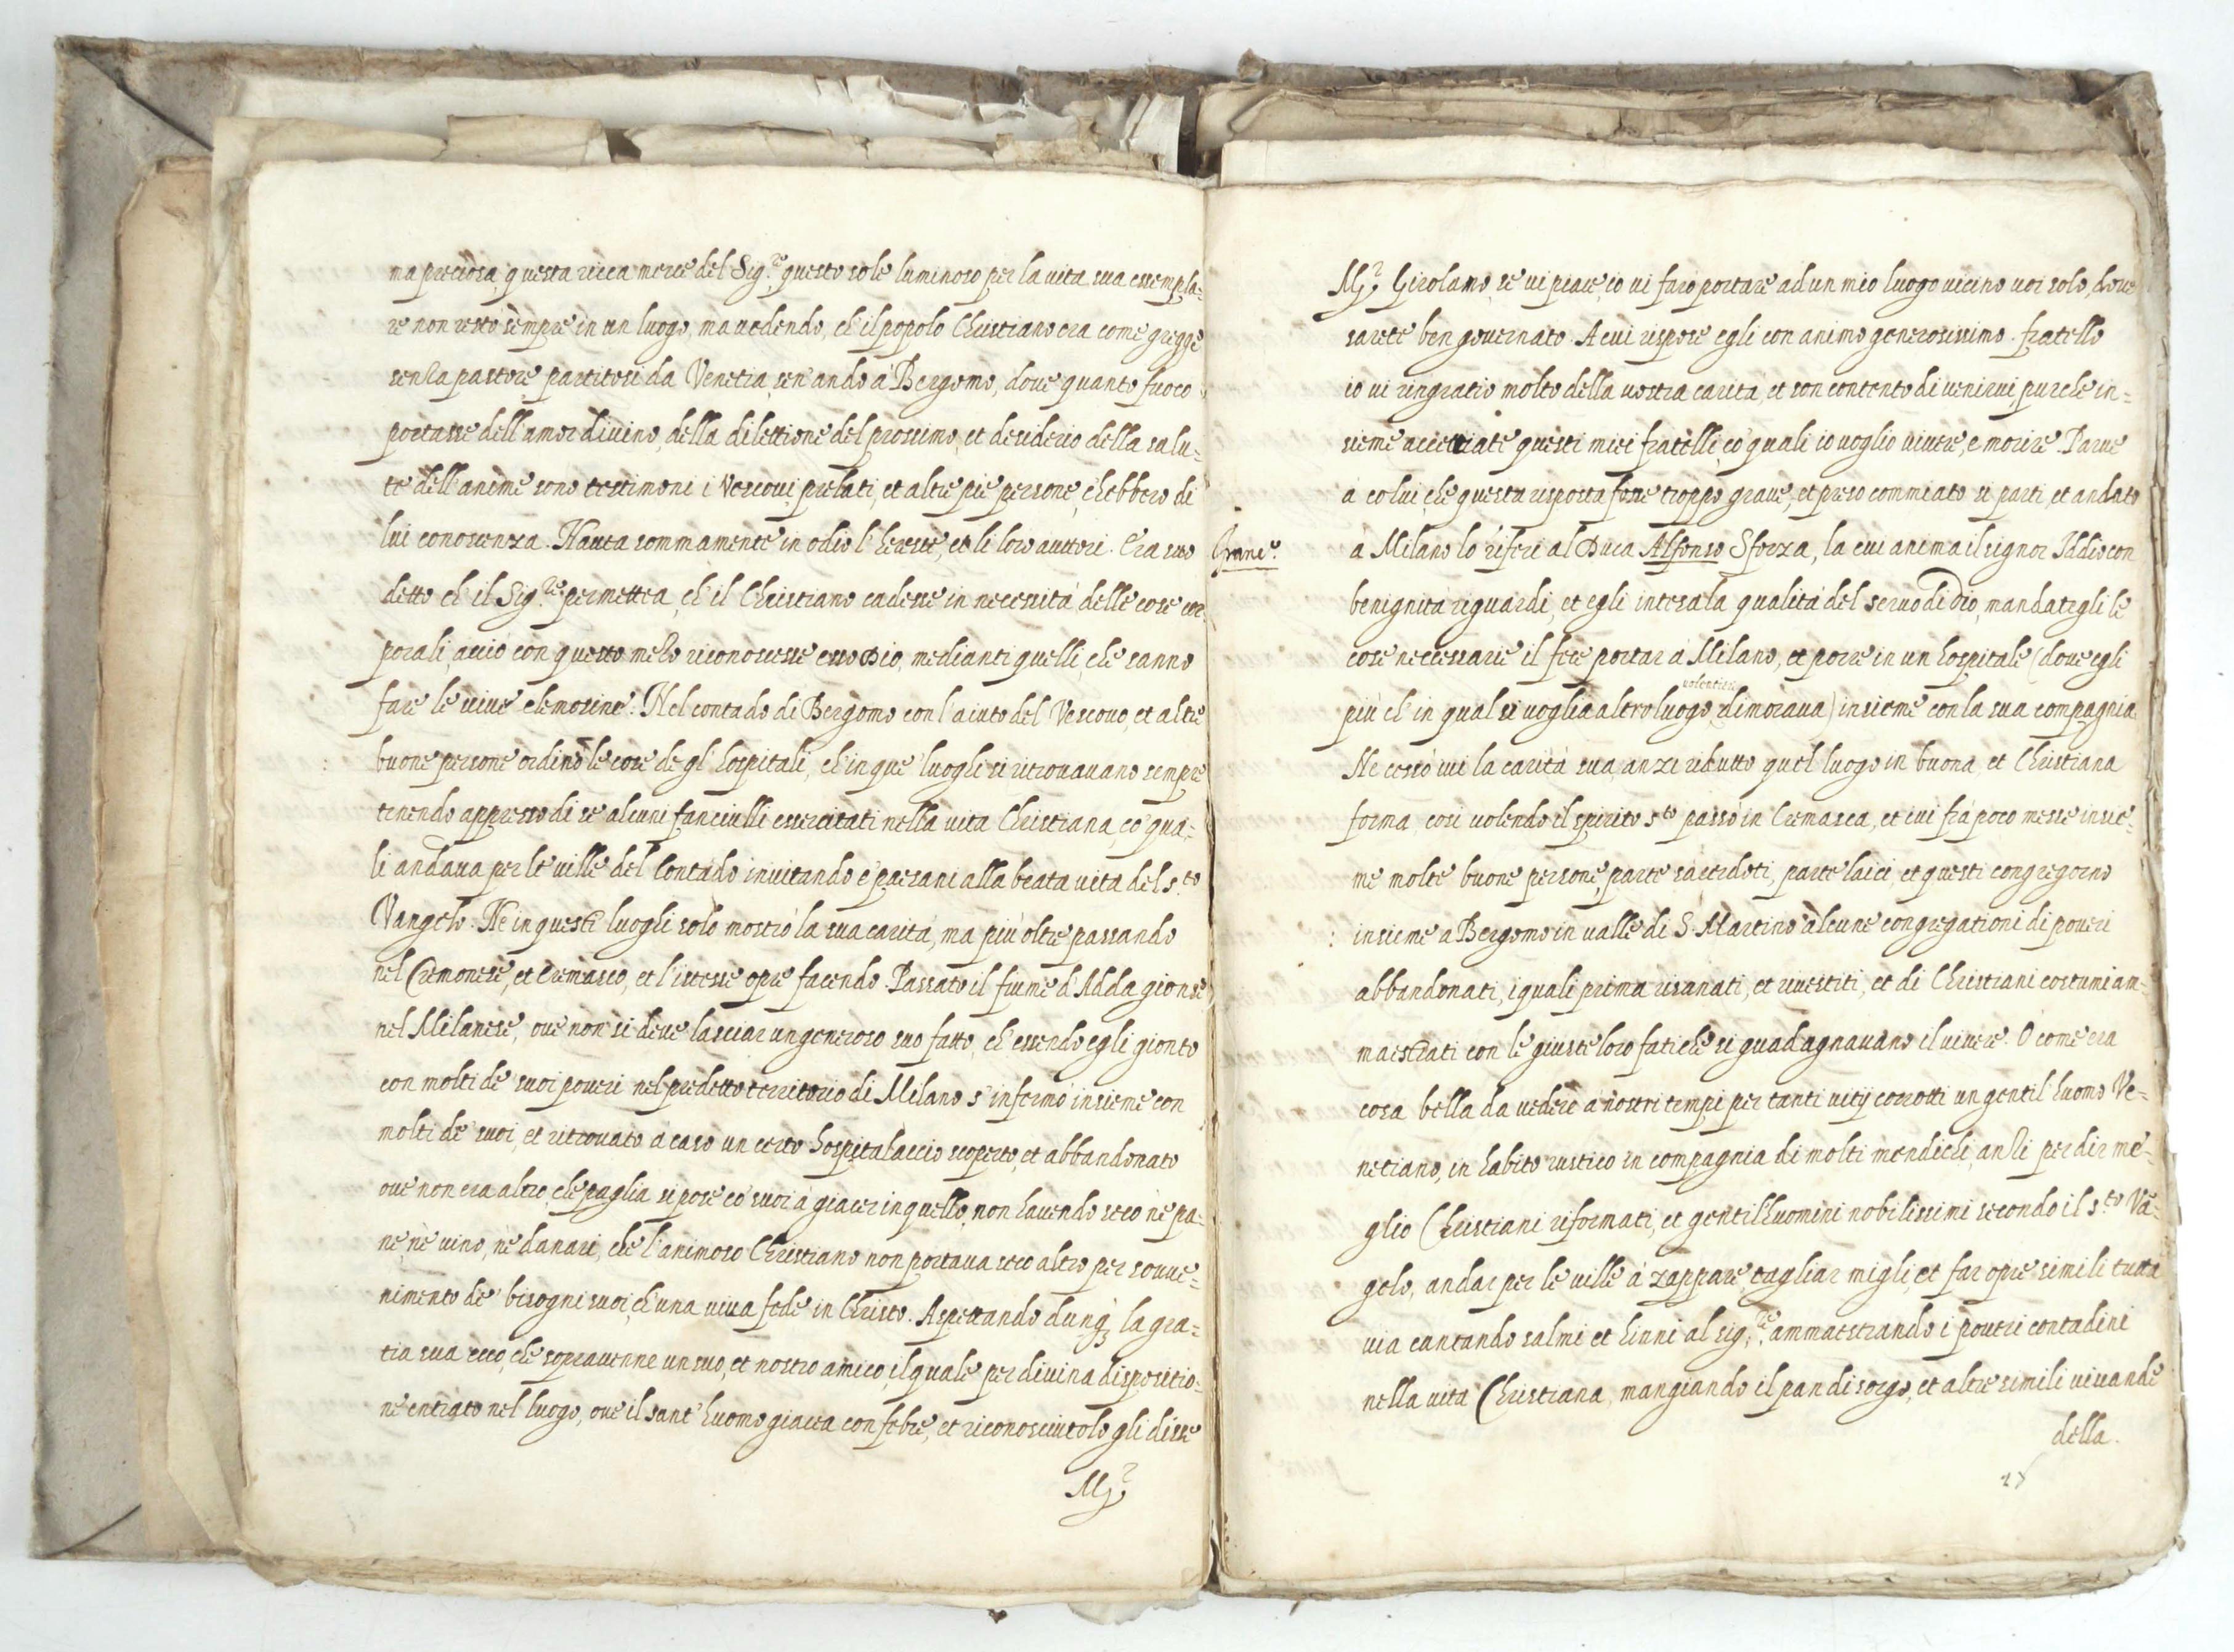 ma preciosa, questa ricca merce del Sig.re questo sole luminoso per la vita sua essempla=
re non restò sempre in un luogo, ma vedendo, ch'il popolo Christiano era come gregge
senza pastore, partitosi da Venetia, sen'andò à Bergomo, dove quanto fuoco
portasse dell'amor divino, della dilettione del prossimo, et desiderio della salu=
te dell'anime sono testimoni i Vescovi, prelati, et altre pie persone, ch'ebbero di
lui conoscenza. Havea sommamente in odio l'heresie, et li loro auttori. Era suo
detto ch'il Sig.re permettea, ch'il Christiano cadesse in necessità delle cose cor=
porali, acciò con questo mezo riconoscesse esso Dio, medianti quelli, che sanno
fare le vive elemosine. Nel contado di Bergomo con l'aiuto del Vescovo, et altre
buone persone ordinò le cose de gl'hospitali, ch'in que' luoghi si ritrovavano sempre
tenendo appresso di se alcuni fanciulli essercitati nella vita Christiana, co' qua=
li andava per le ville del Contado invitando e' paesani alla beata vita del s.to
Vangelo. Ne in questi luoghi solo mostrò la sua carità, ma più oltre passando
nel Cremonese, et Cremasco, et l'istesse opre facendo. Passato il fiume d'Adda gionse
nel Milanese, ove non si deve lasciar un generoso suo fatto, ch'essendo egli gionto
con molti de' suoi poveri nel predetto territorio di Milano s'infermò insieme con
molti de' suoi, et ritrovato à caso un certo hospitalaccio scoperto, et abbandonato
ove non era altro, che paglia si pose co' suoi à giacer in quello, non havendo seco nè pa=
ne, nè vino, nè danari, che l'animoso Christiano non portava seco altro per sovve=
nimento de' bisogni suoi, ch'una viva fede in Christo. Aspettando dunq; la gra=
tia sua ecco, che sopravenne un suo, et nostro amico, il quale per divina dispositio=
ne entrato nel luogo, ove il sant'huomo giacea con febre, et riconosciutolo gli disse
M.r
M.r Girolamo, se vi piace, io vi farò portare ad un mio luogo vicino voi solo, dove
sarete ben governato. A cui rispose egli con animo generosissimo. fratello
io vi ringratio molto della vostra carità, et son contento di venirvi purche in=
sieme accettiate questi miei fratelli, co' quali io voglio vivere, e morire. Parve
a colui, che questa risposta fosse troppo grave, et preso commiato si partì, et andato
Franc.o
à Milano lo riferì al Duca Alfonso Sforza, la cui anima il signor Iddio con
benignità riguardi, et egli intesa la qualità del servo di Dio, mandategli le
cose necessarie il fece portar à Milano, et porre in un hospitale (dove egli
volentieri
più ch'in qual si voglia altro luogo dimorava) insieme con la sua compagnia.
Ne cessò ivi la carità sua, anzi ridutto quel luogo in buona, et Christiana
forma, così volendo il spirito s.to passò in Cremasca, et ivi frà poco messe insie=
me molte buone persone parte sacerdoti, parte laici, et questi congregorno
insieme a Bergomo in valle di S. Martino alcune congregationi di poveri
abbandonati, i quali prima risanati, et rivestiti, et di Christiani costumi am=
maestrati con le giuste loro fatiche si guadagnavano il vivere. O come era
cosa bella da vedere a nostri tempi per tanti vitij corrotti un gentil'huomo Ve=
netiano, in habito rustico in compagnia di molti mendichi, anzi per dir me=
glio Christiani riformati, et gentilhuomini nobilissimi secondo il s.to Va=
gelo, andar per le ville à zappare, tagliar migli, et far opre simili tutta
via cantando salmi et hinni al sig.re, ammaestrando i poveri contadini
nella vita Christiana, mangiando il pan di sorgo, et altre simili vivande
della